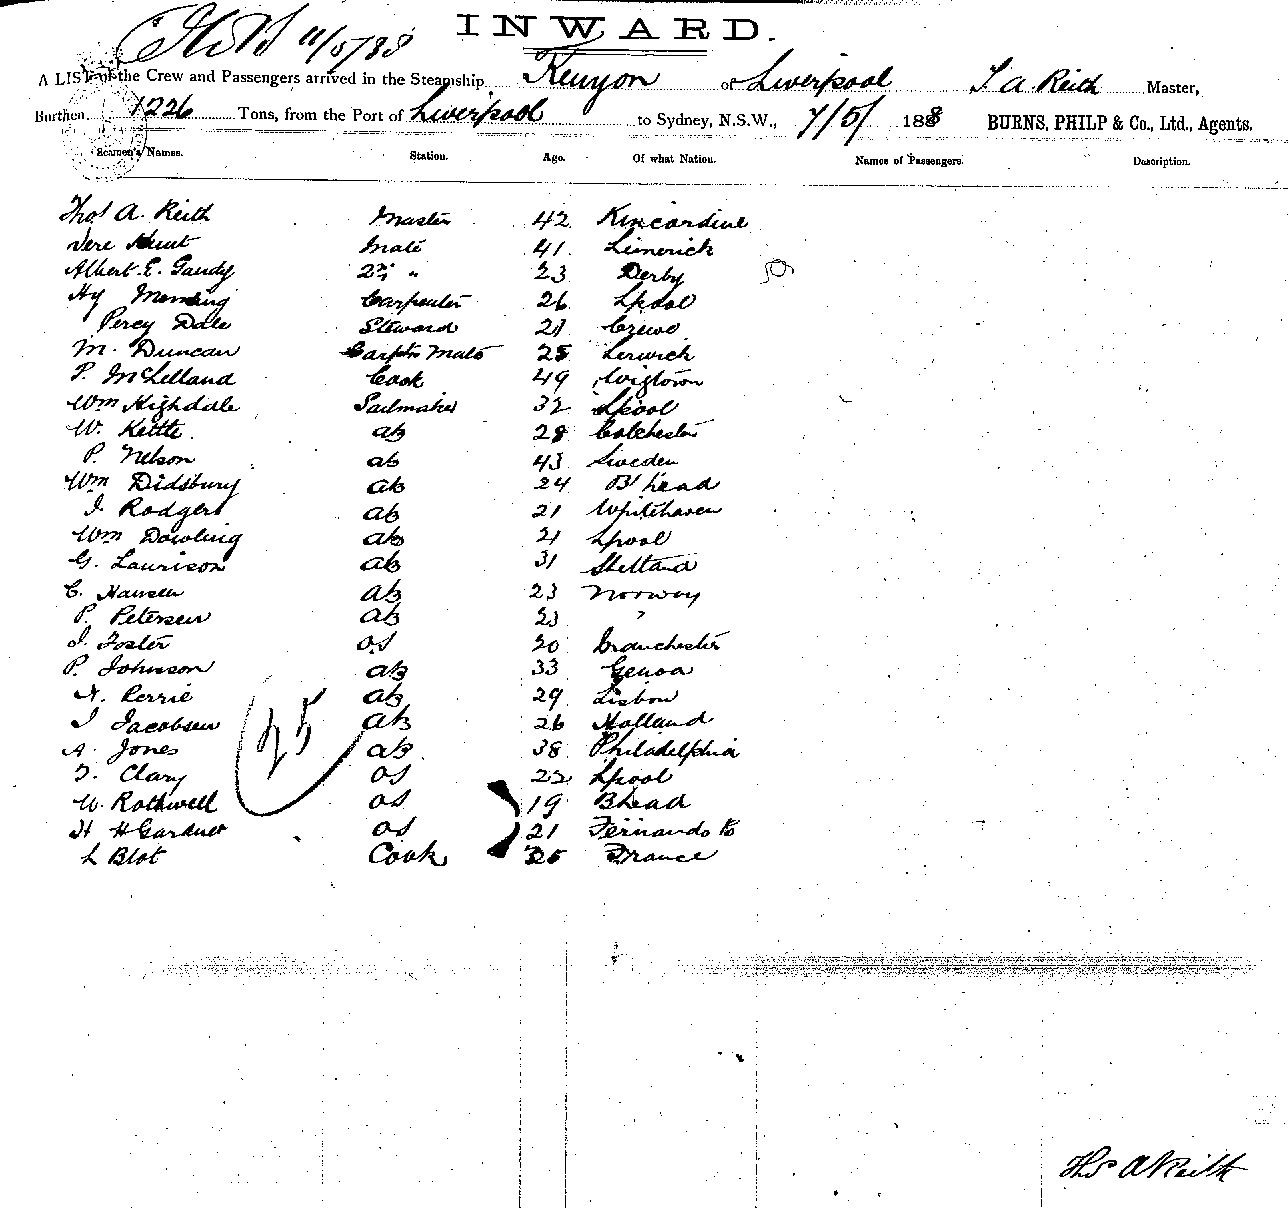 11/5/88
INWARD.
A LIST of the Crew and Passengers arrived in the Steamship Kenyon of Liverpool T A Reith Master,
Burthen 1226 Tons, from the Port of Liverpool to Sydney, N.S.W., 7/5/ 1888 BURNS, PHILP & Co., Ltd., Agents.
Seamen's Names. Station. Age. Of what Nation. Names of Passengers. Description.
Thos A. Reith Master 42 Kincardine
Vere Hunt Mate 41 Limerick
Albert E. Gandy 2nd " 23 Derby
Hy Carpenter 26 Lpool
Percy Dale Steward 21 Crewe
M. Duncan Carptr Mate 25 Lerwick
P. McLelland Cook 49 Wigtown
Wm Highdale Sailmaker 32 Lpool
W. Kettle. ab 28 Colchester
P. Nelson ab 43 Sweden
Wm Didsbury ab 24 B'head
J. Rodgers ab 21 Whitehaven
Wm Dowling ab 21 Lpool
G. Laurison ab 31 Shetland
C. Hansen ab 23 Norway
P. Petersen ab 23 "
J. Foster os 20 Manchester
P. Johnson ab 33 Genoa
N. Perrie ab 29 Lisbon
J Jacobsen ab 26 Holland
A. Jones ab 38 Philadelphia
T. Clary os 22 Lpool
W. Rothwell os 19 Bhead
H H Gardner os 21 Fernando Po
L Blot Cook 25 France
25
Thos A Reith